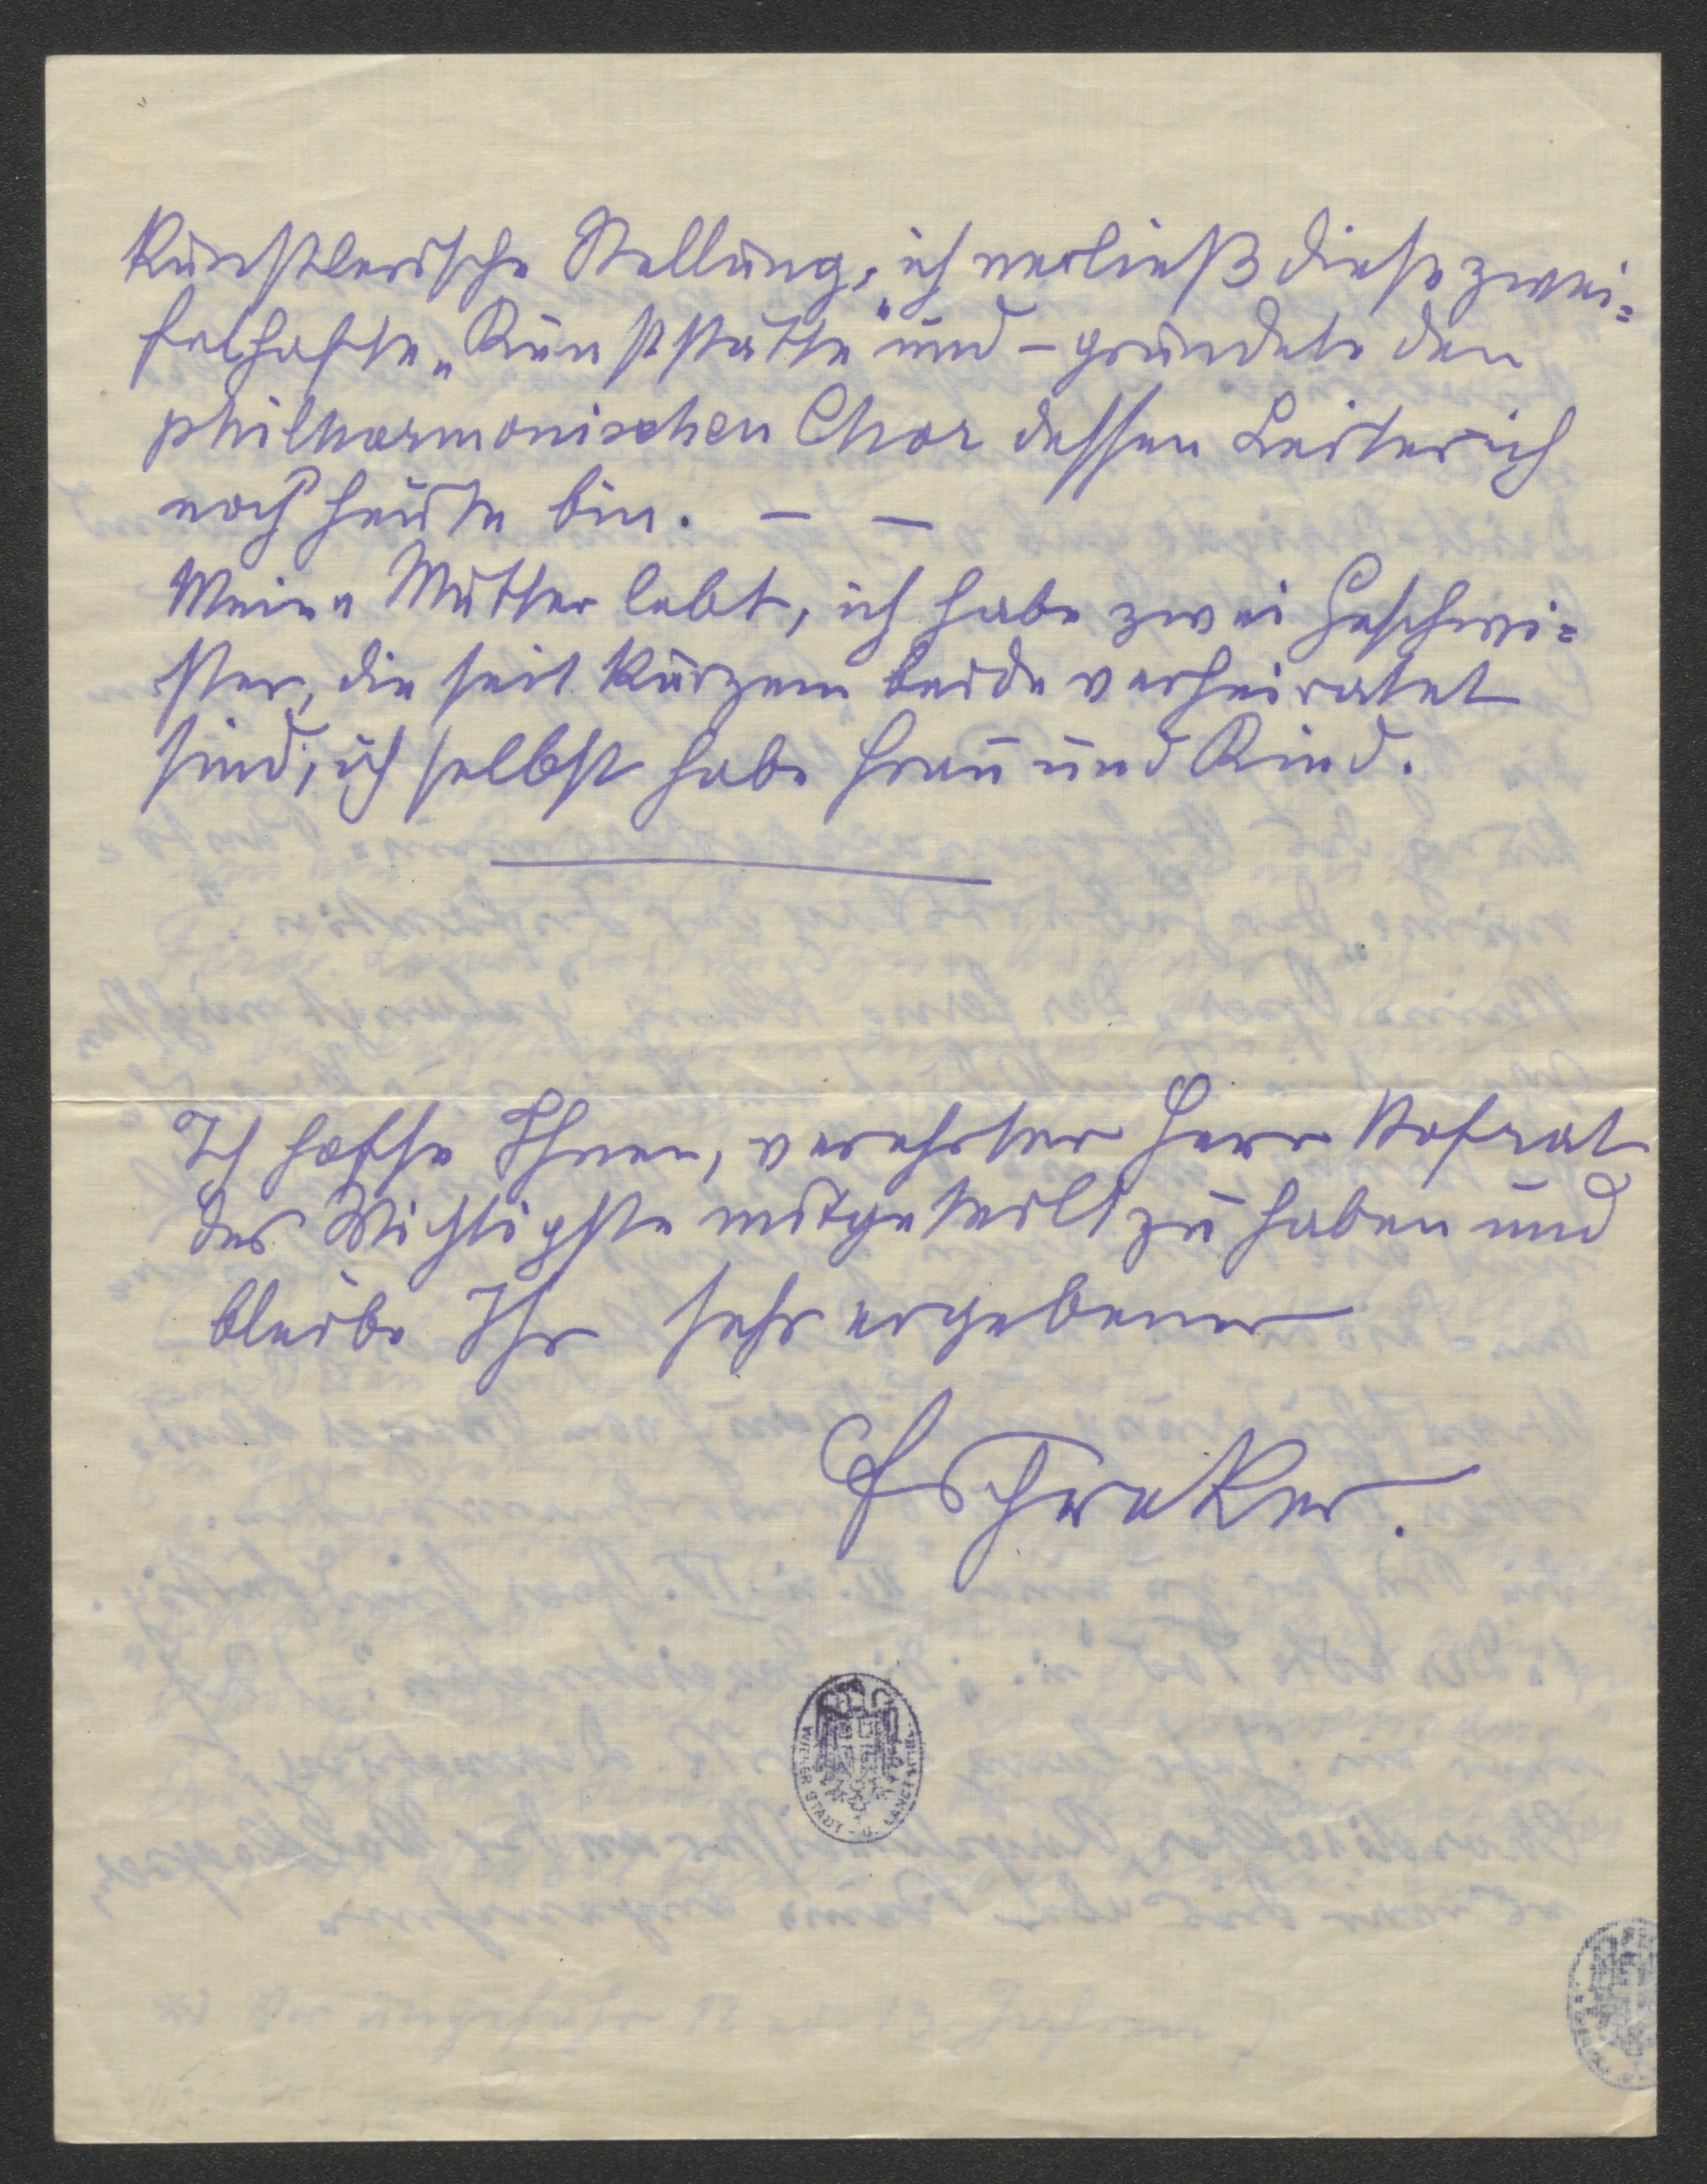 künstlerische Stellung, ich verließ diese zwei=
felhafte „Kunststätte“ und – gründete den
philharmonischen Chor dessen Leiter ich
noch heute bin. – –
Meine Mutter lebt, ich habe zwei Geschwi=
ster, die seit kurzem beide verheiratet
sind, ich selbst habe Frau und Kind.
Ich hoffe Ihnen, verehrter Herr Hofrat
das Wichtigste mitgeteilt zu haben und
bleibe Ihr sehr ergebener
FSchreker.
WIENER STADT - U.